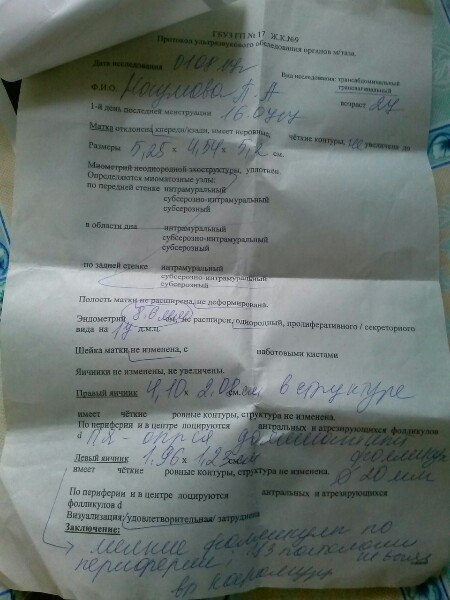 ГБУЗ ГП № 17 Ж.К.№9
Протокол ультразвукового обследования органов м/таза.
Дата исследования 01.08
Вид исследования: трансабдоминальный
трансвагинальный
Ф.И.О возраст 27
1-й день последней менструации 16.07
Матка отклонена кпереди/кзади, имеет неровные, чёткие контуры, не увеличена до
Размеры 5,25 х 4,54 х 5,2 см.
Миометрий неоднородной эхоструктуры, уплотнен.
Определяются миоматозные узлы:
по передней стенке интрамуральный
субсерозно-интрамуральный
субсерозный
в области дна интрамуральный
субсерозно-интрамуральный
субсерозный
по задней стенке интрамуральный
субсерозно-интрамуральный
субсерозный
Полость матки не расширена, не деформирована.
Эндометрий см, не расширен, однородный, пролиферативного / секреторного
вида на 17 д.м.ц.
Шейка матки не изменена, с наботовыми кистами
Яичники не изменены, не увеличены.
Правый яичник 4,10 х 2.08 см. в структуре
имеет чёткие ровные контуры, структура не изменена.
По периферии и в центре лоцируются антральных и атрезирующих фолликулов
d фолликул
Левый яичник 1.96 х 1.25 см.
d 20 мм
имеет чёткие ровные контуры, структура не изменена.
По периферии и в центре лоцируются антральных и атрезирующих
фолликулов d
Визуализация: /удовлетворительная/ затруднена
Заключение:
мелкие фолликулы по
периферии,